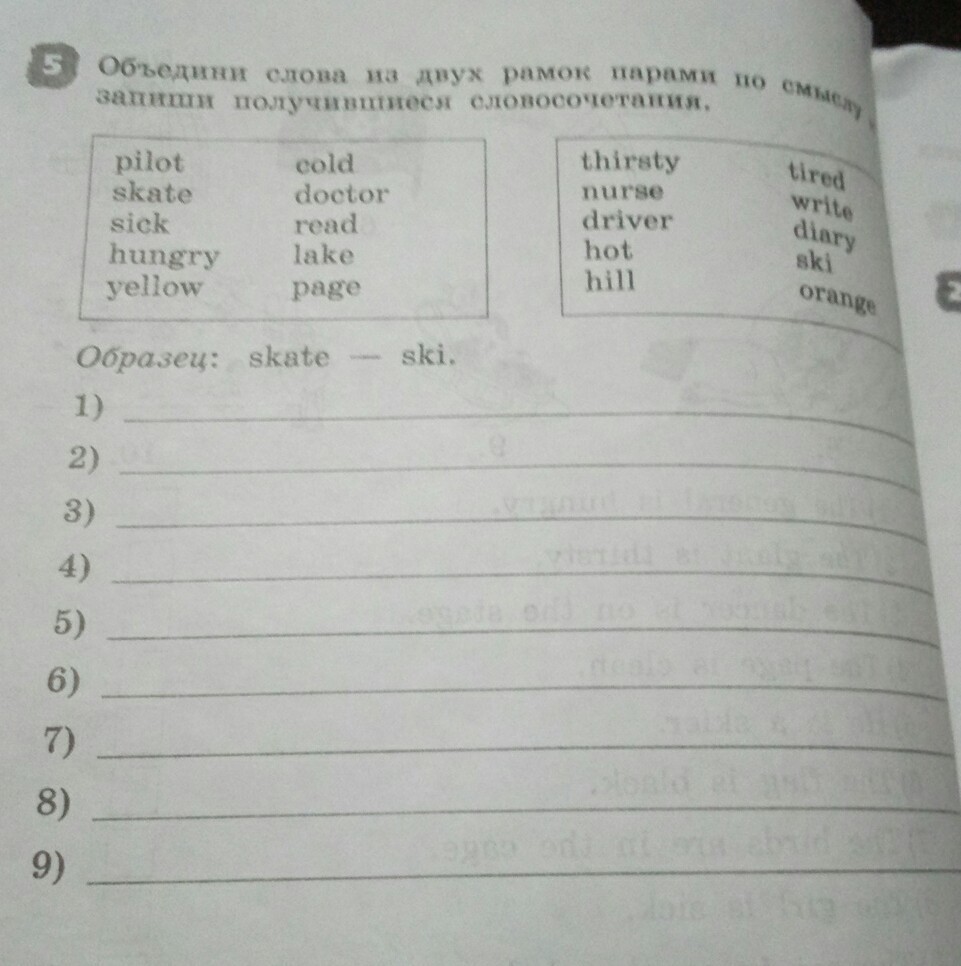 5 Объедини слова из двух рамок парами по смыслу,
запиши получившиеся словосочетания.
pilot cold
skate doctor
sick read
hungry lake
yellow page
thirsty tired
nurse write
driver diary
hot ski
hill orange
Образец: skate — ski.
1)
2)
3)
4)
5)
6)
7)
8)
9)
2